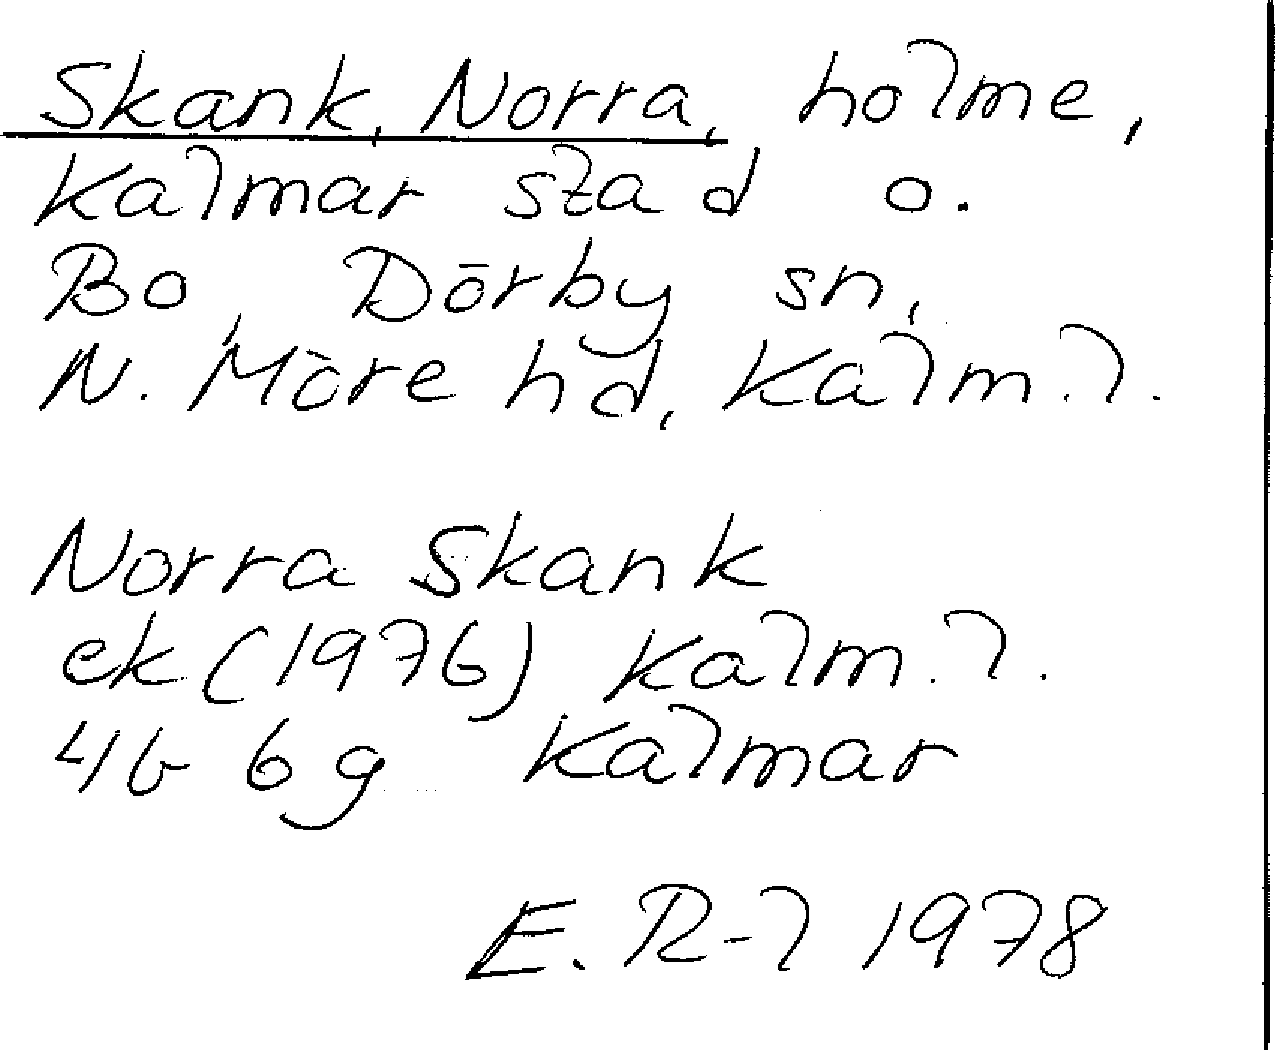 Skank, Norra, holme,
Kalmar stad o.
Bo, Dörby sn,
N. Möre hd, Kalm. l.
Norra Skank
ek (1976) Kalm. l.
4G 6g Kalmar
E. R-l 1978